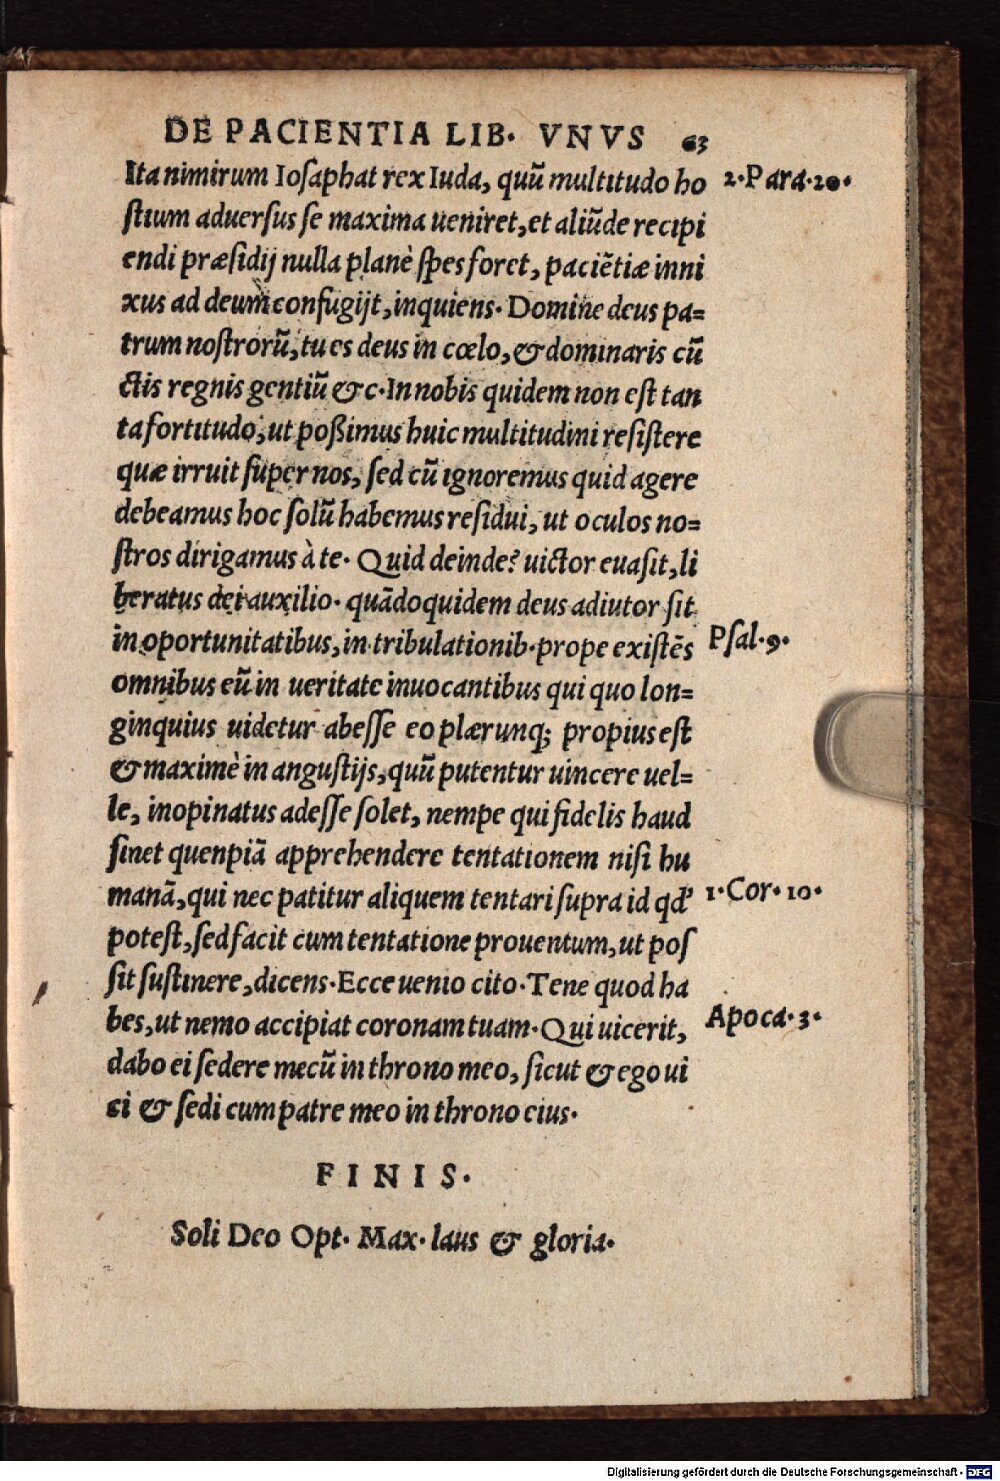 DE PACIENTIA LIB. VNVS 63
Ita nimirum Iosaphat rex Iuda, quũ multitudo ho 2. Para. 20.
stium aduersus se maxima ueniret, et aliũde recipi
endi præsidij nulla planè spes foret, paciẽtiæ inni
xus ad deum confugijt, inquiens. Domine deus pa=
trum nostrorũ, tu es deus in cœlo, & dominaris cũ
ctis regnis gentiũ &c. In nobis quidem non est tan
ta fortitudo, ut poßimus huic multitudini resistere
quæ irruit super nos, sed cũ ignoremus quid agere
debeamus hoc solũ habemus residui, ut oculos no=
stros dirigamus à te. Quid deinde? uictor euasit, li
beratus dei auxilio. quãdoquidem deus adiutor sit
in oportunitatibus, in tribulationib. prope existẽs Psal. 9.
omnibus eũ in ueritate inuocantibus qui quo lon=
ginquius uidetur abesse eo plærunq; propius est
& maximè in angustijs, quũ putentur uincere uel=
le, inopinatus adesse solet, nempe qui fidelis haud
sinet quenpiã apprehendere tentationem nisi hu
manã, qui nec patitur aliquem tentari supra id qđ 1. Cor. 10.
potest, sed facit cum tentatione prouentum, ut pos
sit sustinere, dicens. Ecce uenio cito. Tene quod ha
bes, ut nemo accipiat coronam tuam. Qui uicerit, Apoca. 3.
dabo ei sedere mecũ in throno meo, sicut & ego ui
ci & sedi cum patre meo in throno eius.
FINIS.
Soli Deo Opt. Max. laus & gloria.
Digitalisierung gefördert durch die Deutsche Forschungsgemeinschaft - DFG